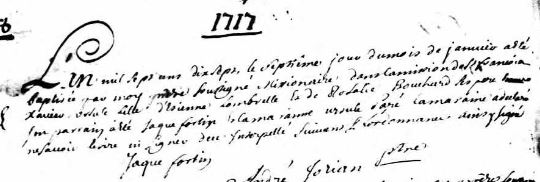 1717
L'An mil sept cens dix sept, le septième jour du mois de janvier a été
baptisée par moy prêtre soussigné Missionaire dans la mission de St francois
Xavier ursule fille d'Etienne et de Rosalie Bouchard
son parrain a été Jaque fortin et la maraine ursule la maraine a declaré
ne savoir écrire ni signer de ce Interpellé suivant l'ordonnance ainsy signé
Jaque fortin
André ptre